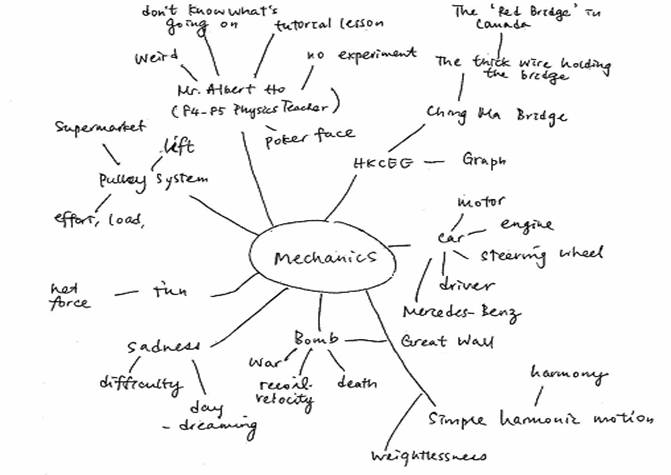 don't know what's
going on
tutorial lesson
The 'Red Bridge' in
Canada
weird
no experiment
The thick wire holding
the bridge
Mr. Albert Ho
(P4-P5 Physics Teacher)
poker face
Ching Ma Bridge
Supermarket
lift
Pulley System
effort, load,
HKCEE
Graph
motor
engine
car
steering wheel
driver
Mercedes-Benz
Mechanics
net
force
fun
Sadness
difficulty
day
-dreaming
Bomb
war
recoil-
velocity
death
Great Wall
harmony
Simple harmonic motion
weightlessness